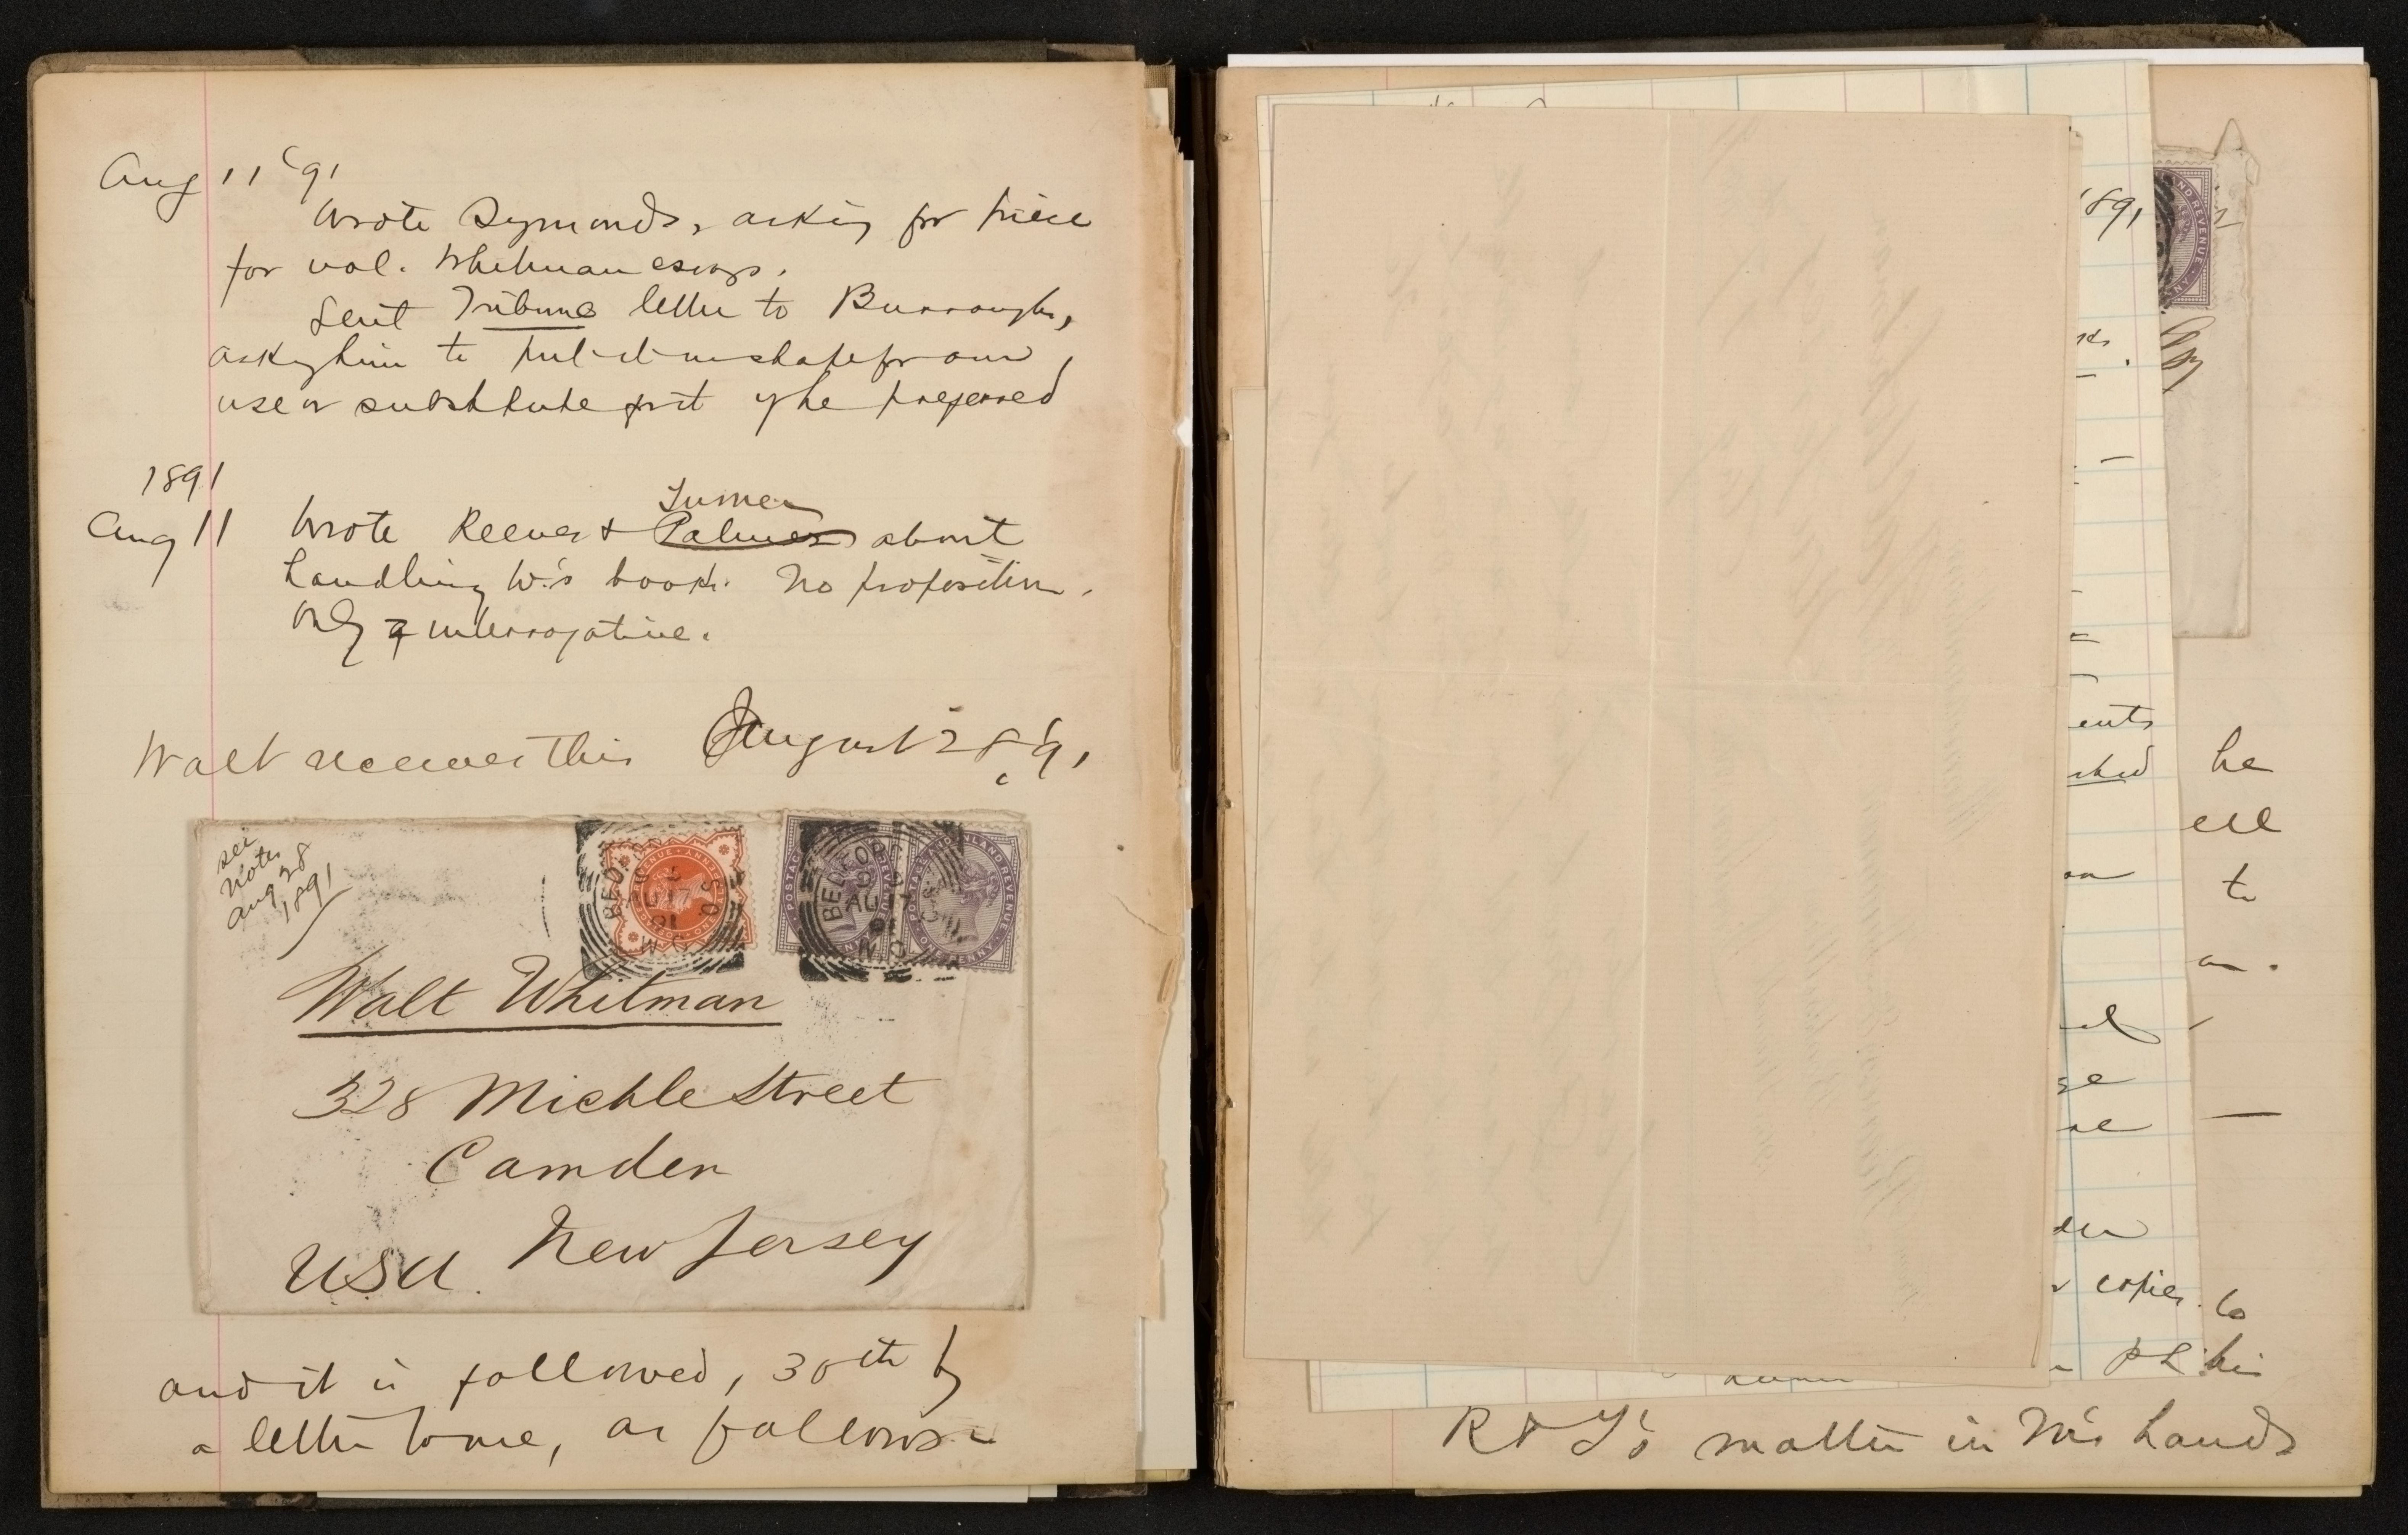 Aug 11 '91
Wrote Symonds, asking for piece
for vol. Whitman essays.
Sent Tribune letter to Burroughs,
asking him to put it in shape for our
use or substitute for it if he preferred
1891
Turner
Aug 11 Wrote Reeves & Palmer about
handling W.'s books. No proposition,
only interrogative.
Walt receives this August 28, '91
see
Notes
Aug 28
1891
BEDFORD ST
AU 17
91
W.C.
BEDFORD ST
AU 17
91
W.C.
Walt Whitman
328 Mickle Street
Camden
New Jersey
USA.
and it is followed, 30th by
a letter to me, as follows
1891
ents
he
to
copies. to
his
R & T's matter in W's hands